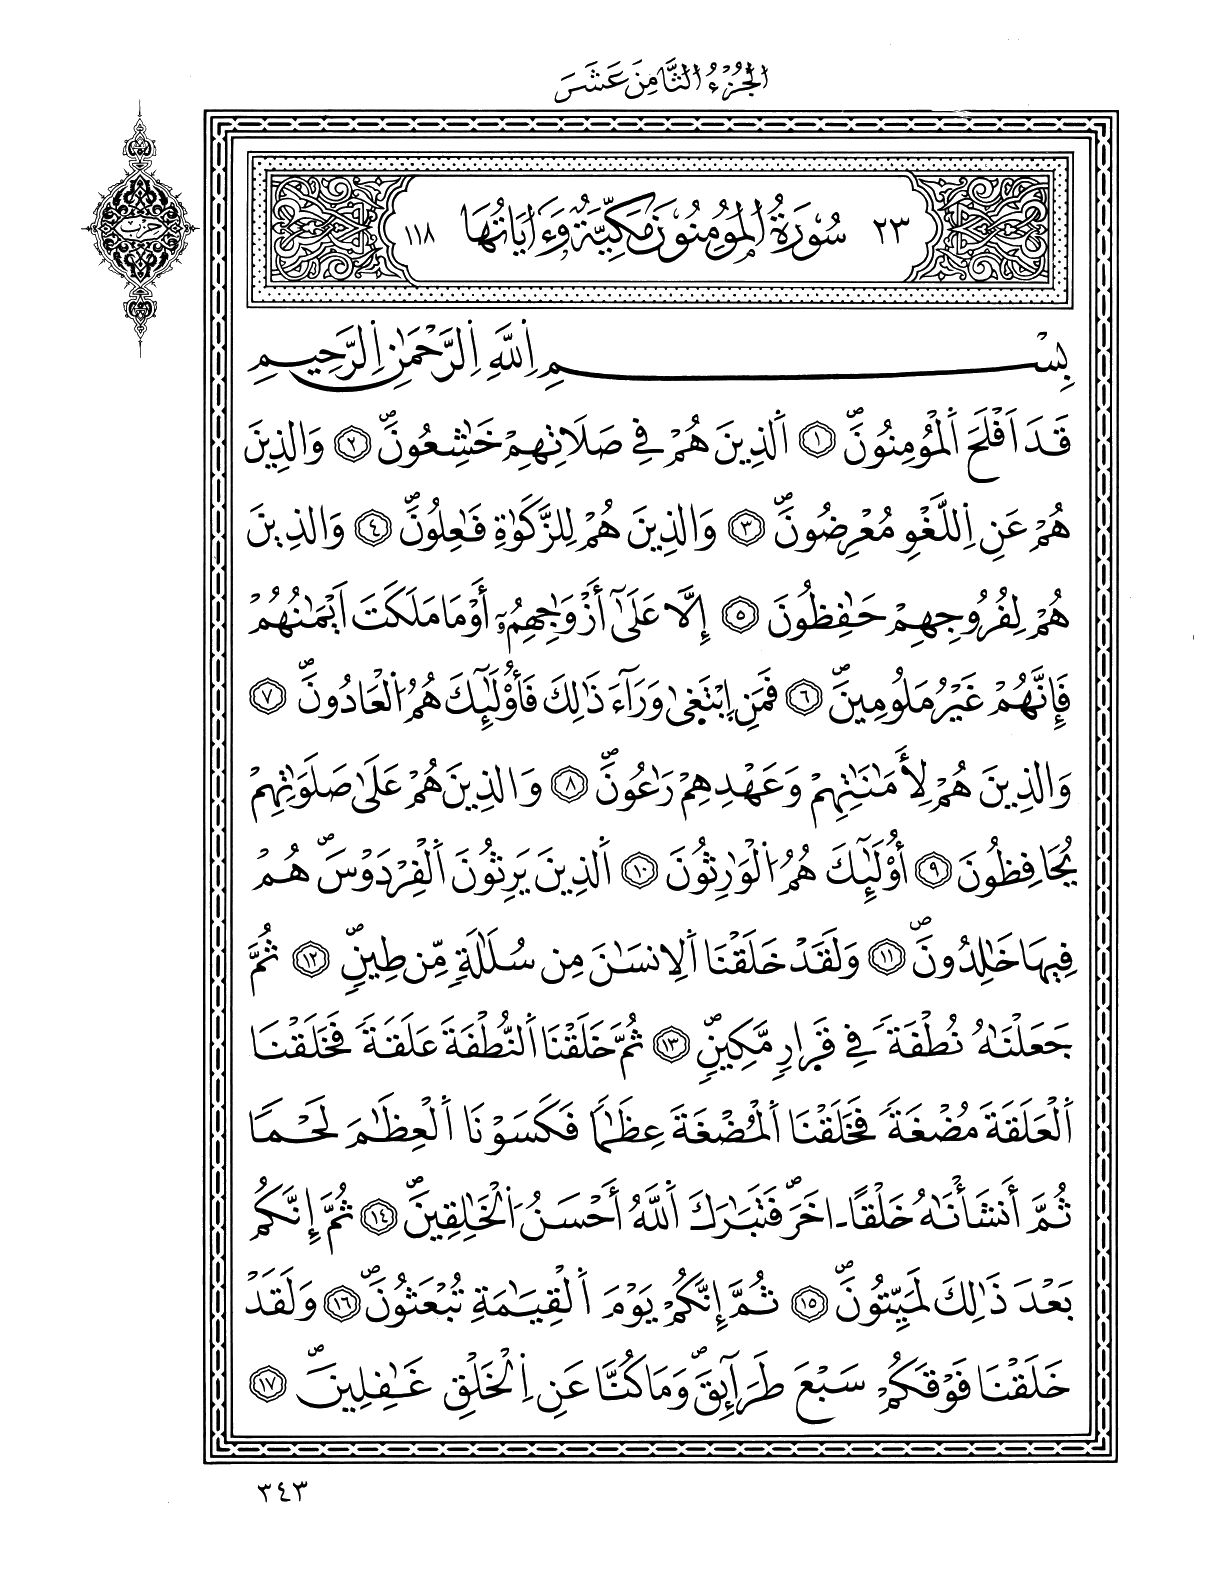 الجُزْءُ الثَّامِنَ عَشَرَ
حِزْب
٢٣ سُورَةُ الْمُومِنُونَ مَكِّيَّةٌ وَءَايَاتُهَا ١١٨
بِسْمِ اِللَّهِ اِلرَّحْمَٰنِ اِلرَّحِيمِ
قَدَ اَفْلَحَ اَلْمُومِنُونَۖ ١ اَلذِينَ هُمْ فِے صَلَاتِهِمْ خَٰشِعُونَۖ ٢ وَالذِينَ
هُمْ عَنِ اِللَّغْوِ مُعْرِضُونَۖ ٣ وَالذِينَ هُمْ لِلزَّكَوٰةِ فَٰعِلُونَۖ ٤ وَالذِينَ
هُمْ لِفُرُوجِهِمْ حَٰفِظُونَ ٥ إِلَّا عَلَىٰٓ أَزْوَٰجِهِمُۥٓ أَوْ مَا مَلَكَتَ اَيْمَٰنُهُمْ
فَإِنَّهُمْ غَيْرُ مَلُومِينَۖ ٦ فَمَنِ اِبْتَغ۪ىٰ وَرَآءَ ذَٰلِكَ فَأُوْلَٰٓئِكَ هُمُ اُلْعَادُونَۖ ٧
وَالذِينَ هُمْ لِأَمَٰنَٰتِهِمْ وَعَهْدِهِمْ رَٰعُونَۖ ٨ وَالذِينَ هُمْ عَلَىٰ صَلَوَٰتِهِمْ
يُحَافِظُونَ ٩ أُوْلَٰٓئِكَ هُمُ اُلْوَٰرِثُونَ ١٠ اَلذِينَ يَرِثُونَ اَلْفِرْدَوْسَۖ هُمْ
فِيهَا خَٰلِدُونَۖ ١١ وَلَقَدْ خَلَقْنَا اَلِانسَٰنَ مِن سُلَٰلَةٍ مِّن طِينٍۖ ١٢ ثُمَّ
جَعَلْنَٰهُ نُطْفَةً فِے قَر۪ارٍ مَّكِينٍۖ ١٣ ثُمَّ خَلَقْنَا اَلنُّطْفَةَ عَلَقَةً فَخَلَقْنَا
اَلْعَلَقَةَ مُضْغَةً فَخَلَقْنَا اَلْمُضْغَةَ عِظَٰماً فَكَسَوْنَا اَلْعِظَٰمَ لَحْماً
ثُمَّ أَنشَأْنَٰهُ خَلْقاً ـ اخَرَۖ فَتَبَٰرَكَ اَللَّهُ أَحْسَنُ اُلْخَٰلِقِينَۖ ١٤ ثُمَّ إِنَّكُم
بَعْدَ ذَٰلِكَ لَمَيِّتُونَۖ ١٥ ثُمَّ إِنَّكُمْ يَوْمَ اَلْقِيَٰمَةِ تُبْعَثُونَۖ ١٦ وَلَقَدْ
خَلَقْنَا فَوْقَكُمْ سَبْعَ طَرَآئِقَۖ وَمَا كُنَّا عَنِ اِلْخَلْقِ غَٰفِلِينَۖ ١٧
٣٤٣